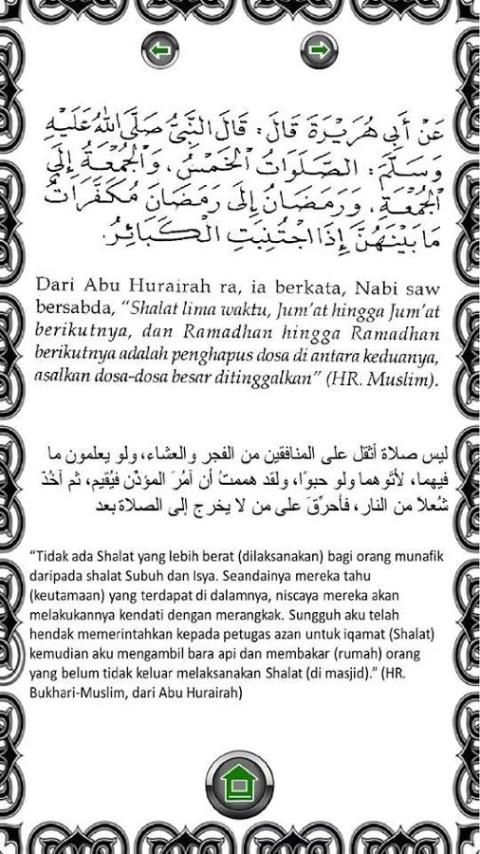 عَنْ أَبِي هُرَيْرَةَ قَالَ: قَالَ النَّبِيُّ صَلَّى اللهُ عَلَيْهِ
وَسَلَّمَ: الصَّلَوَاتُ الْخَمْسُ، وَالْجُمْعَةُ إِلَى
الْجُمْعَةِ، وَرَمَضَانُ إِلَى رَمَضَانَ مُكَفِّرَاتٌ
مَا بَيْنَهُنَّ إِذَا اجْتُنِبَتِ الْكَبَائِرُ.
Dari Abu Hurairah ra, ia berkata, Nabi saw
bersabda, “Shalat lima waktu, Jum'at hingga Jum'at
berikutnya, dan Ramadhan hingga Ramadhan
berikutnya adalah penghapus dosa di antara keduanya,
asalkan dosa-dosa besar ditinggalkan” (HR. Muslim).
ليس صلاة أثقل على المنافقين من الفجر والعشاء، ولو يعلمون ما
فيهما، لأتوهما ولو حبوًا، ولقد هممت أن آمُرَ المؤذّن فيُقيم، ثم آخُذَ
شُعلاً من النار، فأحرِّقَ على من لا يخرج إلى الصلاة بعد
“Tidak ada Shalat yang lebih berat (dilaksanakan) bagi orang munafik
daripada shalat Subuh dan Isya. Seandainya mereka tahu
(keutamaan) yang terdapat di dalamnya, niscaya mereka akan
melakukannya kendati dengan merangkak. Sungguh aku telah
hendak memerintahkan kepada petugas azan untuk iqamat (Shalat)
kemudian aku mengambil bara api dan membakar (rumah) orang
yang belum tidak keluar melaksanakan Shalat (di masjid).” (HR.
Bukhari-Muslim, dari Abu Hurairah)